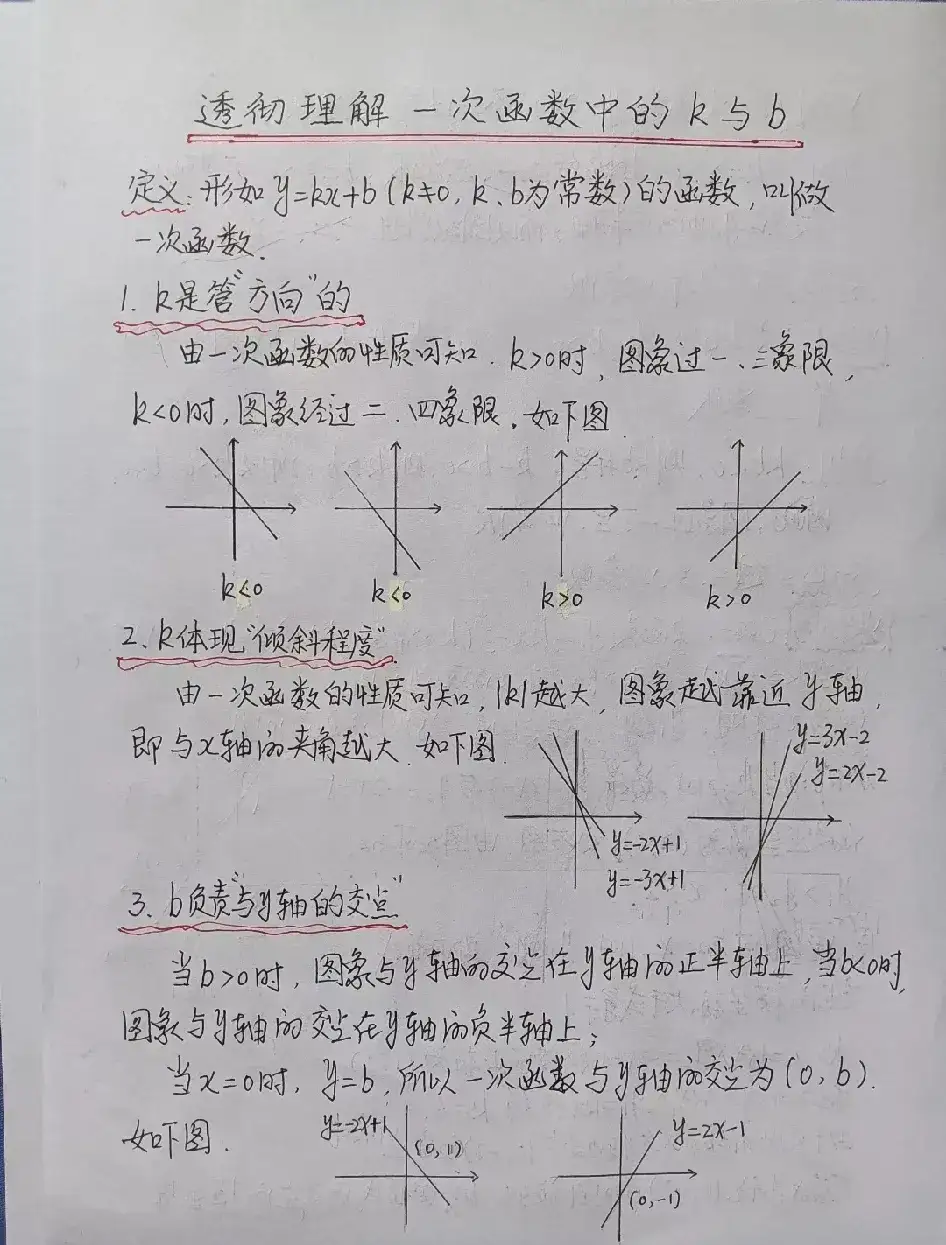 透彻理解一次函数中的k与b
定义:形如y=kx+b(k≠0,k、b为常数)的函数,叫做
一次函数.
1. k是管"方向"的
由一次函数的性质可知.k>0时,图象过一、三象限,
k<0时,图象经过二.四象限.如下图
k<0 k<0 k>0 k>0
2、k体现"倾斜程度"
由一次函数的性质可知,|k|越大,图象越靠近y轴,
即与x轴的夹角越大.如下图.
y=3x-2
y=2x-2
y=-2x+1
y=-3x+1
3、b负责"与y轴的交点"
当b>0时,图象与y轴的交点在y轴的正半轴上,当b<0时,
图象与y轴的交点在y轴的负半轴上;
当x=0时,y=b,所以一次函数与y轴的交点为(0,b).
如下图.
y=-2x+1
(0,1)
y=2x-1
(0,-1)